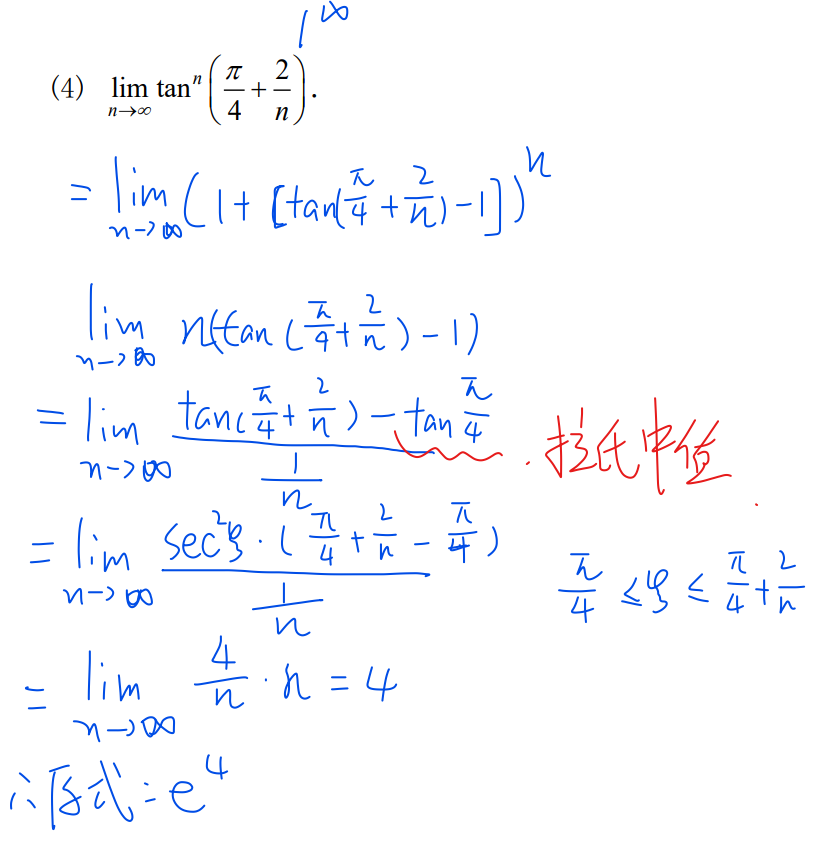 1^∞
(4) lim_{n→∞} tan^n (π/4 + 2/n).
= lim_{n→∞} (1 + [tan(π/4 + 2/n) - 1])^n
lim_{n→∞} n(tan(π/4 + 2/n) - 1)
= lim_{n→∞} (tan(π/4 + 2/n) - tan π/4) / (1/n) . 拉氏中值
= lim_{n→∞} (sec²ξ · (π/4 + 2/n - π/4)) / (1/n) π/4 ≤ ξ ≤ π/4 + 2/n
= lim_{n→∞} 4/n · n = 4
∴ 原式 = e^4